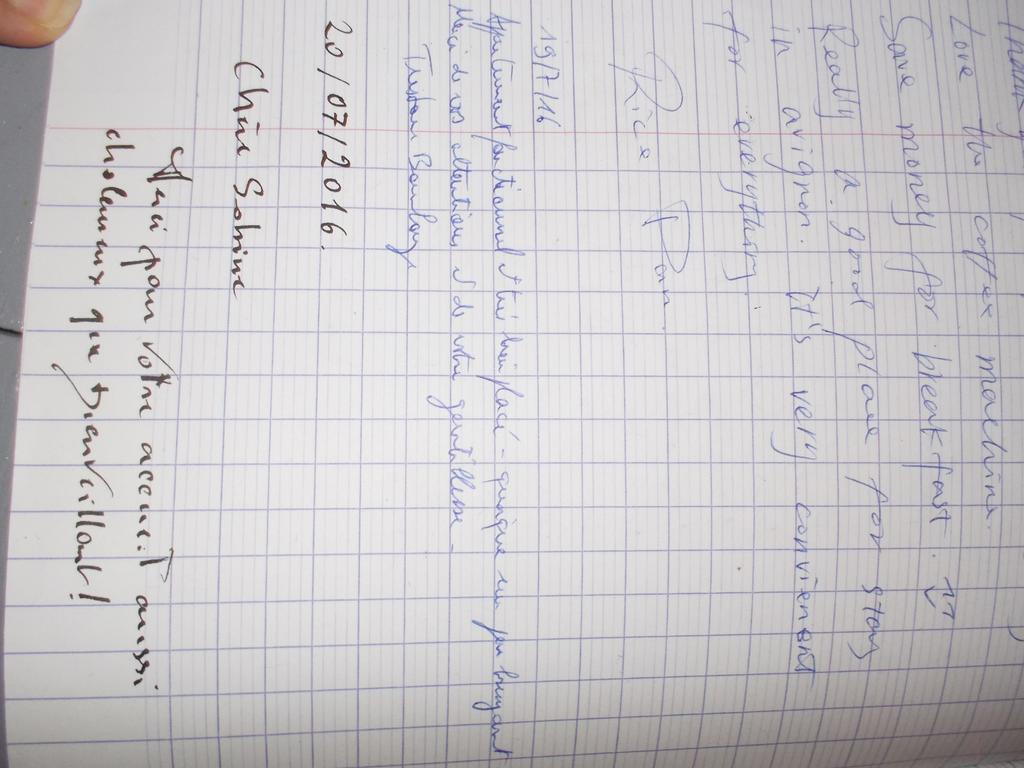 Love the coffee machine.
Save money for breakfast.
Really a good place for stay
in avignon. It's very convienant
for everything.
Rice Pan
19/7/16
Appartement fonctionnel et très bien placé - quoique un peu bruyant
Merci de vos attentions et de votre gentillesse -
20/07/2016.
Sabine
Merci pour votre accueil aussi
chaleureux que bienveillant!